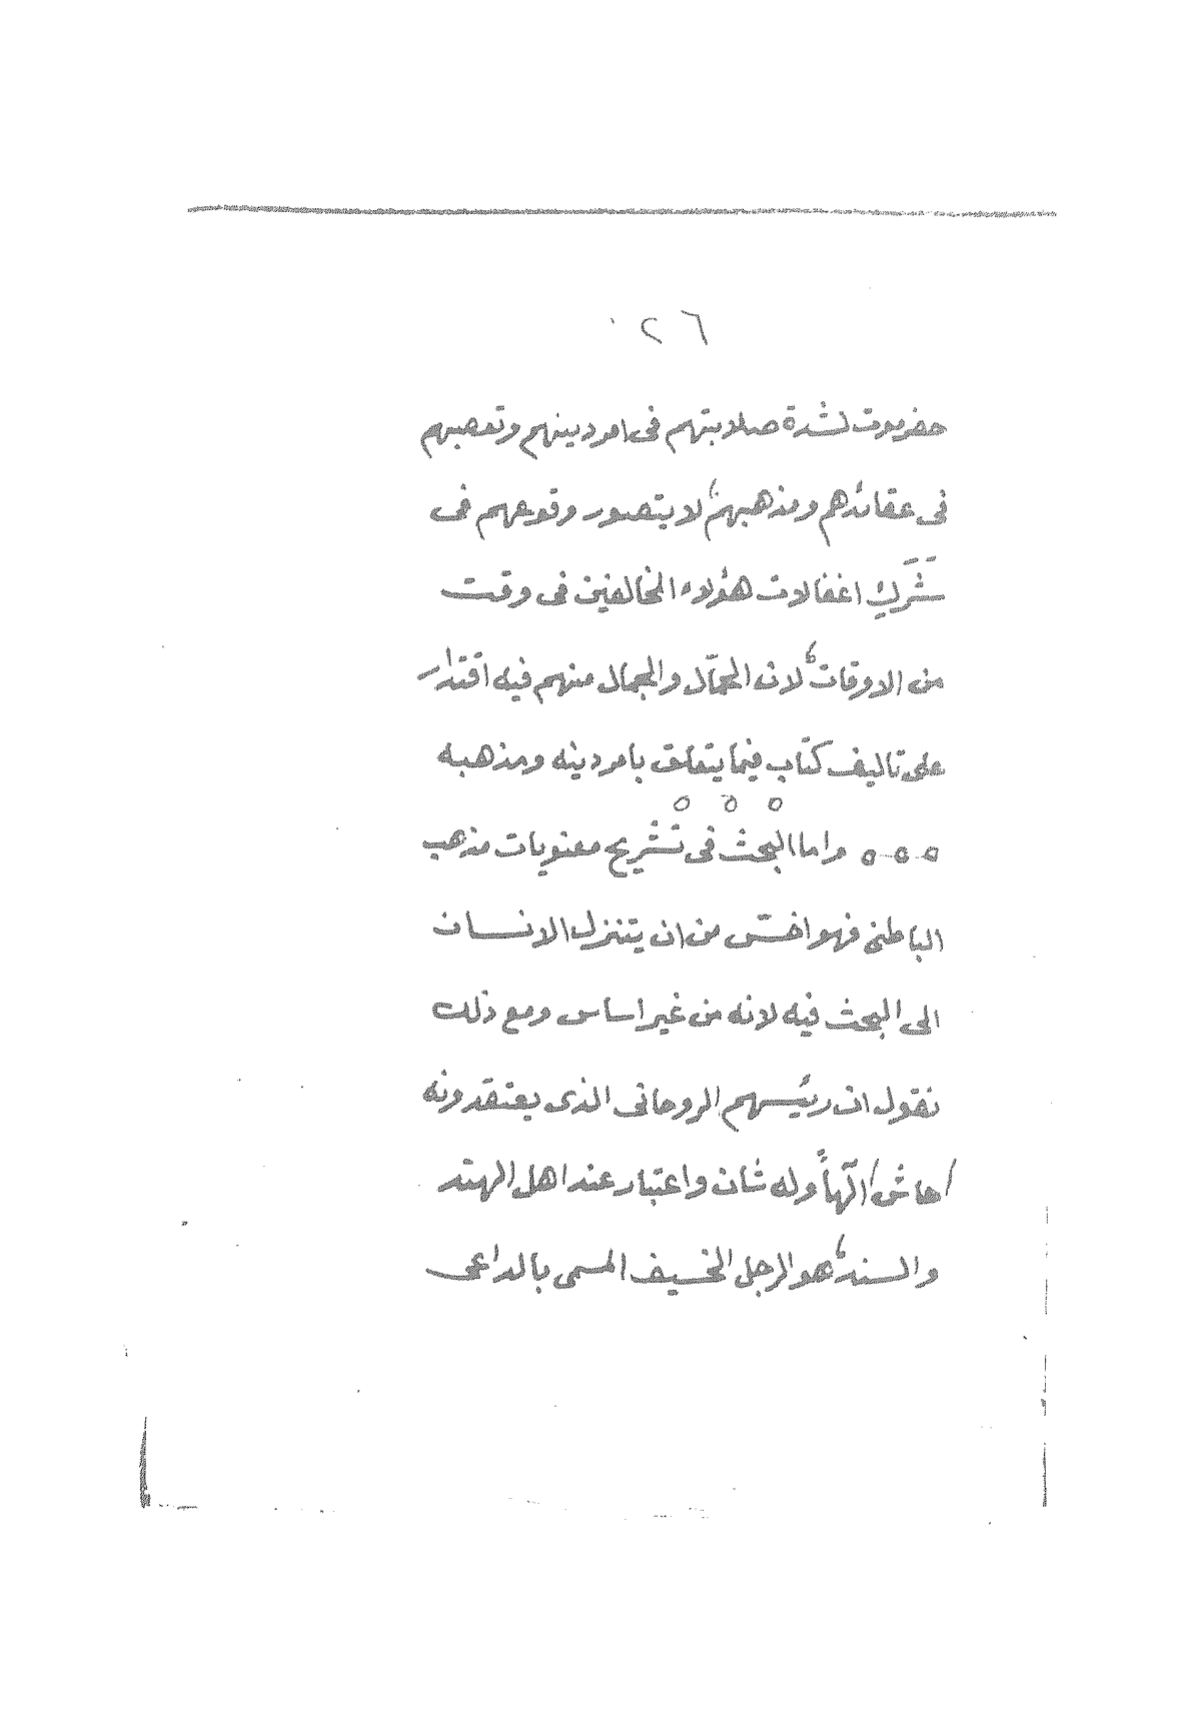 ٢٦
حضرموت لشدة صلابتهم فى امر دينهم وتعصبهم
فى عقائدهم ومذهبهم، لا يتصور وقوعهم فى
شَرَكِ اغفالات هؤلاء المخالفين فى وقت
من الاوقات، لان الحمّال والجمال منهم فيه اقتدار
على تاليف كتاب فيما يتعلق بامر دينه ومذهبه
ه ه ه
ه-ه-ه واما البحث فى تشريح معنويات مذهب
الباطنى فهو اخسّ من ان يتنزل الانسان
الى البحث فيه لانه من غير اساس ومع ذلك
نقول ان رئيسهم الروحانى الذى يعتقدونه
/حاش/ الٓهاً وله شان واعتبار عند اهل الهند
والسند، هو الرجل الخسيف المسمى بالداعى